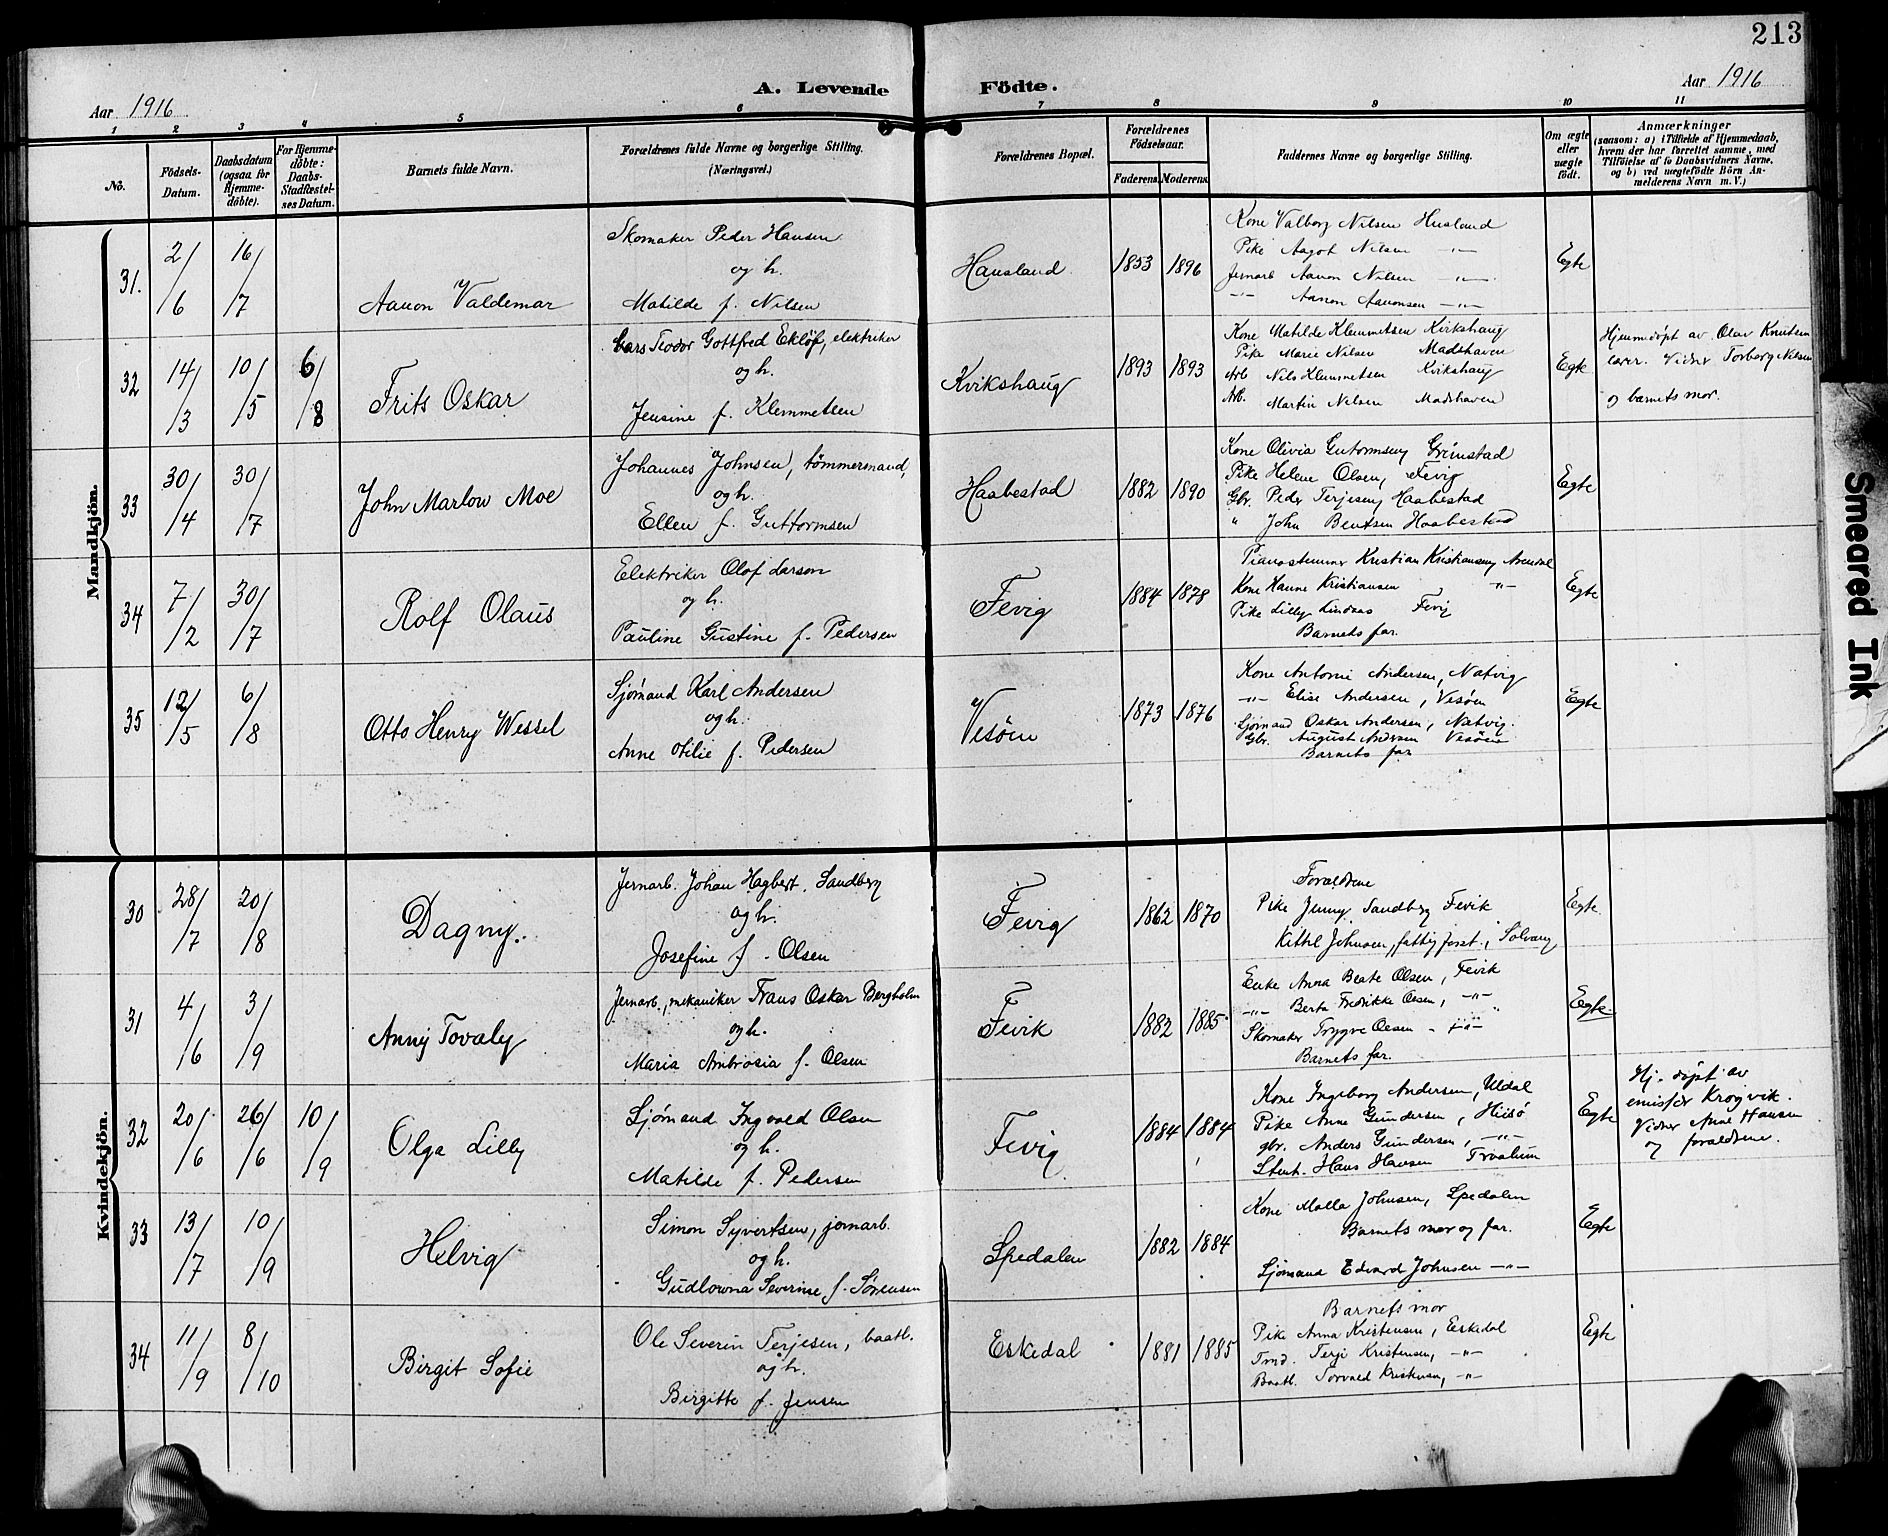 213
A. Levende Födte.
Aar 1916
Aar 1916
1 2 3 4 5 6 7 8 9 10 11
No.
Födsels-
Datum.
Daabsdatum
(ogsaa for
Hjemme-
döbte).
For Hjemme-
döbte:
Daabs-
Stadfæstel-
ses Datum.
Barnets fulde Navn.
Forældrenes fulde Navne og borgerlige Stilling.
(Næringsvei.)
Forældrenes Bopæl.
Forældrenes
Födselsaar.
Faderens. Moderens.
Faddernes Navne og borgerlige Stilling.
Om ægte
eller
uægte
födt.
Anmærkninger
(saasom: a) i Tilfælde af Hjemmedaab,
hvem der har forrettet samme, med
Tilföielse af to Daabsvidners Navne,
og b) ved uægtefödte Börn An-
melderens Navn m. V.)
Mandkjön.
31.
2/6
16/7
Aanon Valdemar
Skomaker Peder Hansen
og h.
Matilde f. Nilsen
Hausland
1853 1896
Kone Valborg Nilsen Husland
Pike Aagot Nilsen -"-
Jernarb Aanon Nilsen -"-
-"- Aanon Aanonsen -"-
Egte
32
14/3
10/5
6/8
Frits Oskar
Lars Teodor Gottfred Eklöf, elektriker
og h.
Jensine f. Klemmetsen
Kvikshaug
1893 1893
Kone Matilde Klemmetsen Kvikshaug
Pike Marie Nilsen Madshaven
Arb Nils Klemmetsen Kvikshaug
Arb. Martin Nilsen Madshaven
Egte
Hjemmedöpt av Olav Knutsen
lærer. Vidner Torborg Nilsen
og barnets mor.
33
30/4
30/7
John Marlow Moe
Johannes Johnsen, tömmermand,
og h.
Ellen f. Guttormsen
Haabestad
1882 1890
Kone Olivia Gutormsen, Grimstad
Pike Helene Olsen, Fevig
Gbr. Peder Terjesen, Haabestad
" John Bentsen Haabestad
Egte
34
7/2
30/7
Rolf Olaus
Elektriker Olof Larson
og h.
Pauline Gustine f. Pedersen
Fevig
1884 1878
Pianostemmer Kristian Kristiansen, Arendal
Kone Hanne Kristiansen -"-
Pike Lilly Lindaas Fevig
Barnets far.
Egte
35
12/5
6/8
Otto Henry Wessel
Sjömand Karl Andersen
og h.
Anne Otilie f. Pedersen
Vesöen
1873 1876
Kone Antonie Andersen, Natvig
-"- Elise Andersen, Vesöen
Sjömand Oskar Andersen, Natvig.
Gbr. August Andersen Vesöen
Barnets far
Egte
Kvindekjön.
30
28/7
20/8
Dagny.
Jernarb. Johan Hagbert. Sandberg
og h.
Josefine f. Olsen
Fevig
1862 1870
Foraldrene
Pike Jenny Sandberg Fevik
Kittil Johnsen, fattigforst., Solvang
Egte
31
4/6
3/9
Anny Tovaly
Jernarb., mekaniker Frans Oskar Bergholm
og h.
Maria Ambrosia f. Olsen
Fevik
1882 1885
Enke Anna Beate Olsen, Fevik
-"- Berta Fredrikke Olsen, -"-
Skomaker Trygve Olsen -"-
Barnets far.
Egte
32
20/6
26/6
10/9
Olga Lilly
Sjömand Ingvald Olsen
og h.
Matilde f. Pedersen
Fevig
1884 1884
Kone Ingeborg Andersen, Uldal
Pike Anne Gundersen, Hisö
gbr. Anders Gundersen, -"-
Stent. Hans Hansen
Egte
Hj. döpt av
emissær Krogvik.
Vidner Anne Hansen
og foraldrene.
33
13/7
10/9
Helvig
Simon Syvertsen, jernarb.
og h.
Gudlowna Severine f. Sörensen
Spedalen
1882 1884
Kone Malla Johnsen, Spedalen
Barnets mor og far.
Sjömand Edvard Johnsen -"-
Egte
34
11/9
8/10
Birgit Sofie
Ole Severin Terjesen, baatb.
og h.
Birgitte f. Jensen
Eskedal
1881 1885
Barnets mor
Pike Anna Kristensen, Eskedal
Tmd. Terje Kristensen, -"-
Baatb. Torvald Kristensen, -"-
Egte
Smeared Ink